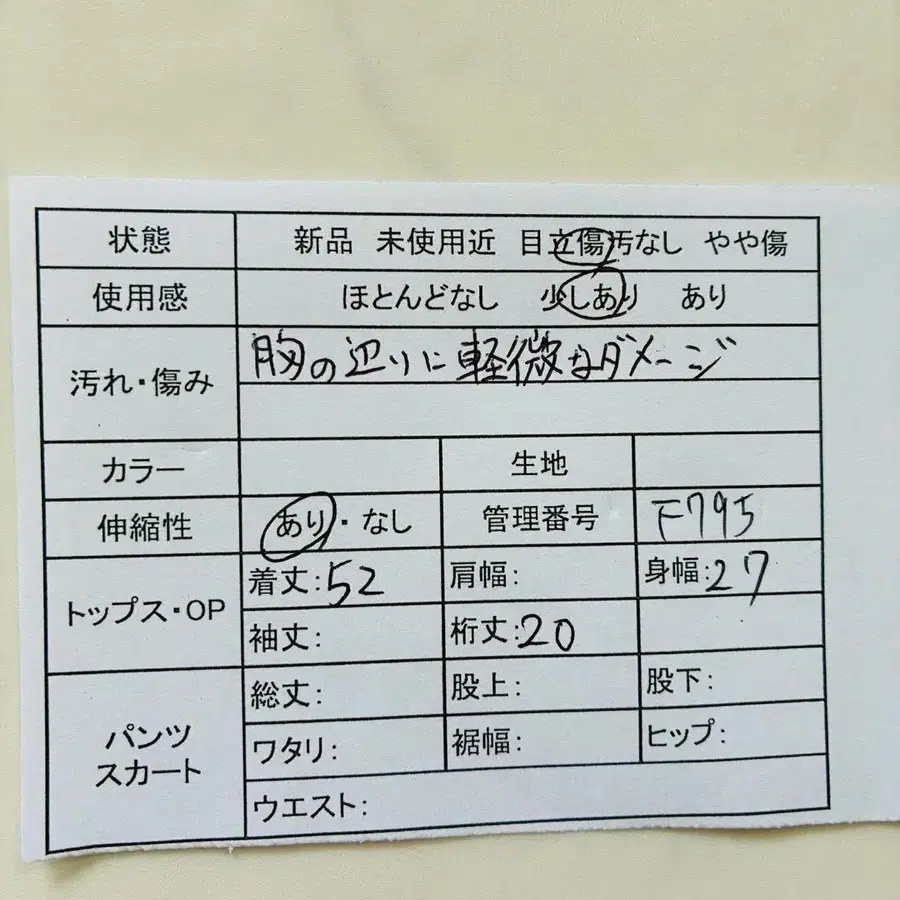 状態 新品 未使用近 目立傷汚なし やや傷
使用感 ほとんどなし 少しあり あり
汚れ・傷み 胸の辺りに軽微なダメージ
カラー 生地
伸縮性 あり・なし 管理番号 下795
トップス・OP 着丈:52 肩幅: 身幅:27
袖丈: 裄丈:20
パンツ スカート 総丈: 股上: 股下:
ワタリ: 裾幅: ヒップ:
ウエスト: